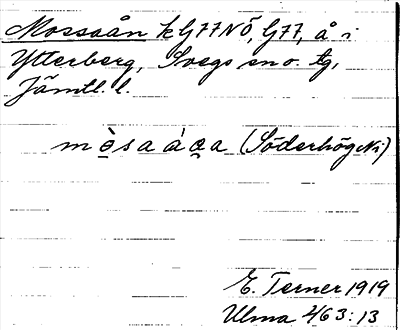 Mossaån k G77NÖ, G77, å i
Ytterberg, Svegs sn o. tg,
Jämtl. l.
m ȯ̱ s a å a̱ a (Söderhög
E. Terner 1919
Ulma 463:13